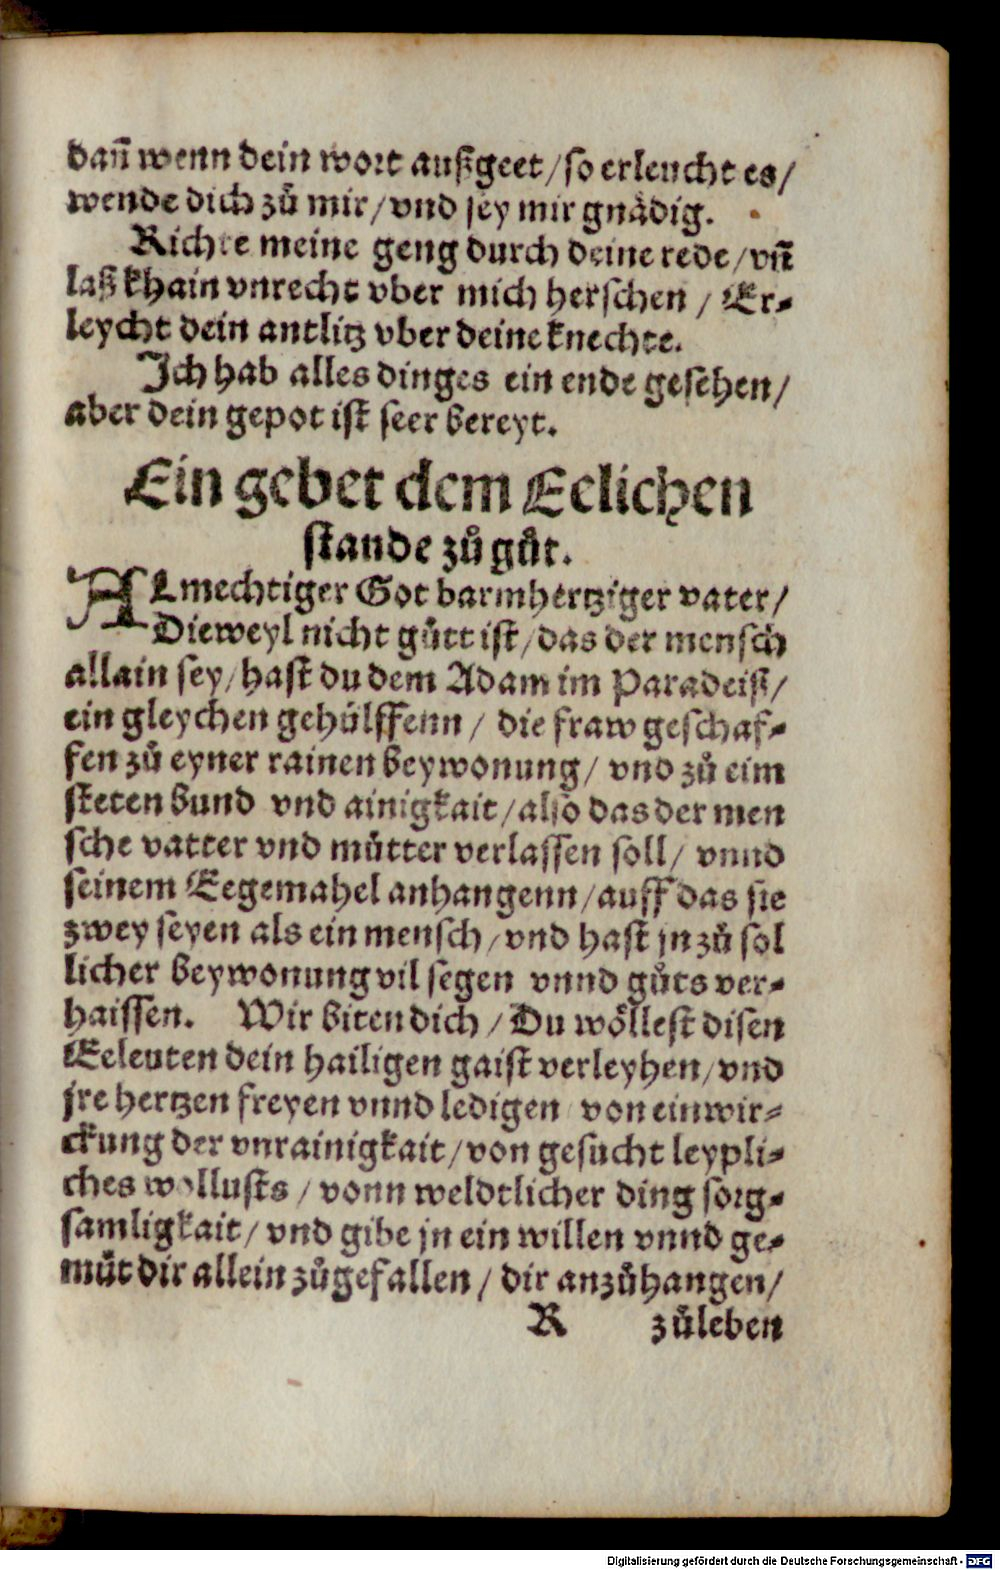 dañ wenn dein wort außgeet/so erleucht es/
wende dich zů mir/vnd sey mir gnådig.
Richte meine geng durch deine rede/vñ
laß khain vnrecht vber mich herschen / Er-
leycht dein antlitz vber deine knechte.
Ich hab alles dinges ein ende gesehen/
aber dein gepot ist seer bereyt.
Ein gebet dem Eelichen
stande zů gůt.
ALmechtiger Got barmhertziger vater/
Dieweyl nicht gůtt ist/das der mensch
allain sey/hast du dem Adam im Paradeiß/
ein gleychen gehülffenn / die fraw geschaf-
fen zů eyner rainen beywonung/ vnd zů eim
steten bund vnd ainigkait/also das der men
sche vatter vnd můtter verlassen soll/ vnnd
seinem Eegemahel anhangenn/auff das sie
zwey seyen als ein mensch/vnd hast jn zů sol
licher beywonung vil segen vnnd gůts ver-
haissen. Wir biten dich / Du wöllest disen
Eeleuten dein hailigen gaist verleyhen/vnd
jre hertzen freyen vnnd ledigen von einwir-
ckung der vnrainigkait/von gesucht leypli-
ches wollusts / vonn weldtlicher ding sorg-
samligkait/ vnd gibe jn ein willen vnnd ge-
můt dir allein zůgefallen / dir anzůhangen/
R zůleben
Digitalisierung gefördert durch die Deutsche Forschungsgemeinschaft - DFG